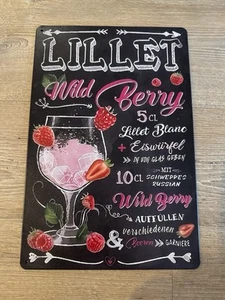 LILLET
Wild Berry
5 CL
Lillet Blanc
+ Eiswürfel
IN EIN GLAS GEBEN
10 CL MIT SCHWEPPES RUSSIAN
Wild Berry
AUFFÜLLEN
& verschiedenen
Beeren GARNIERE